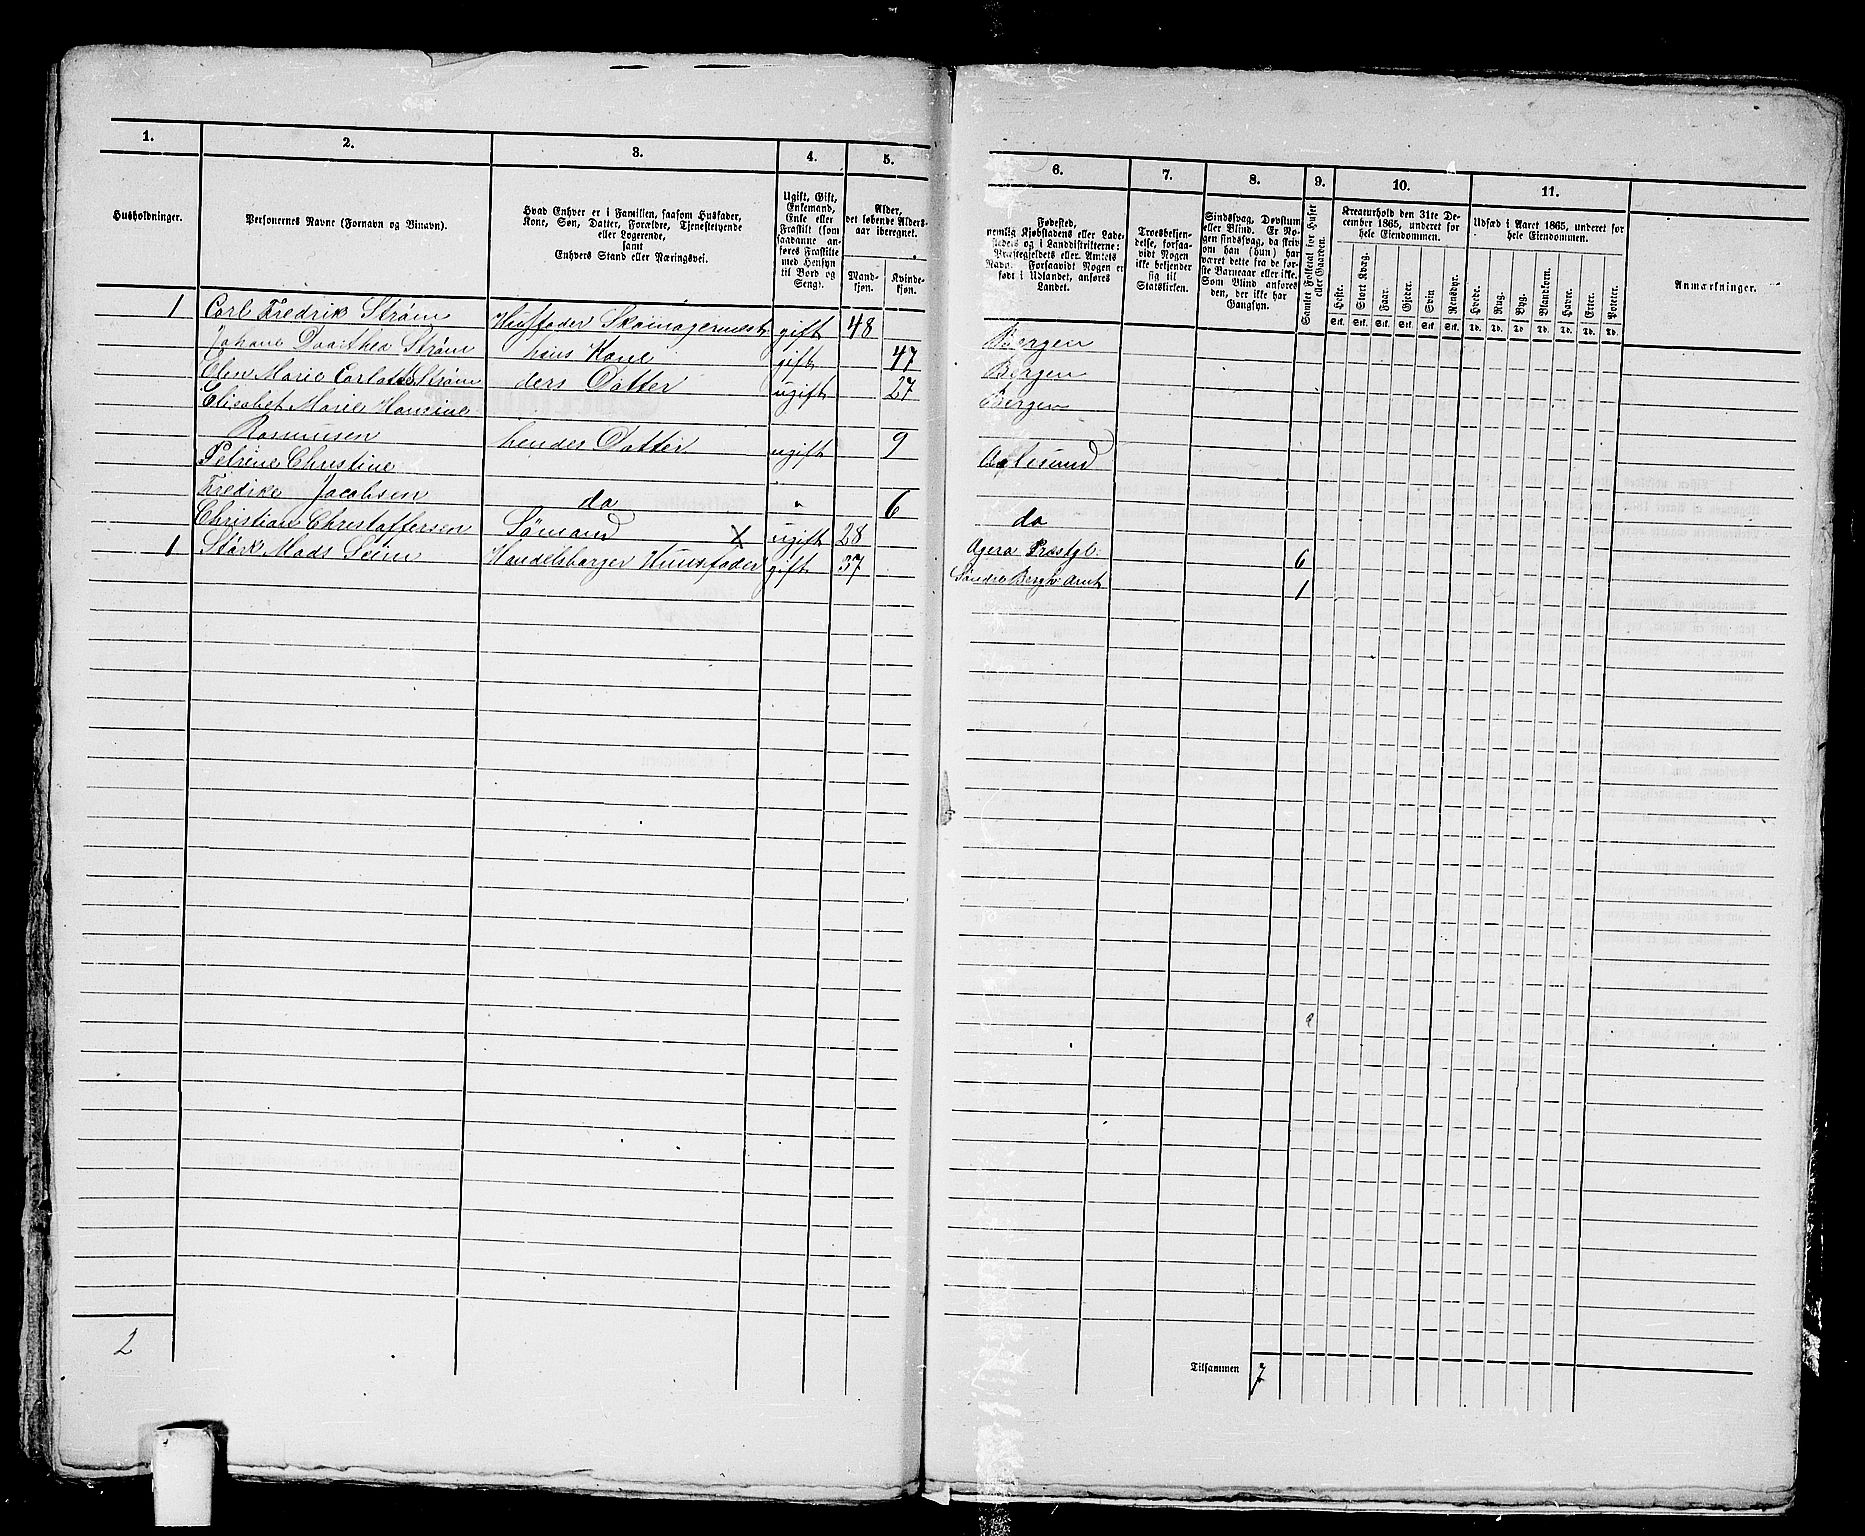 1. 2. 3. 4. 5. 6. 7. 8. 9. 10. 11.
Husholdninger.
Personernes Navne (Fornavn og Binavn).
Hvad Enhver er i Familien, saasom Husfader,
Kone, Søn, Datter, Forældre, Tjenestetyende
eller Logerende,
samt
Enhvers Stand eller Næringsvei.
Ugift, Gift,
Enkemand,
Enke eller
Fraskilt (som
saadanne an-
føres Fraskilte
med Hensyn
til Bord og
Seng).
Alder,
det løbende Alders-
aar iberegnet.
Mand-
kjøn.
Kvinde-
kjøn.
Fødested,
nemlig Kjøbstadens eller Lade-
stedets og i Landdistrikterne:
Præstegjeldets eller Amtets
Navn. Forsaavidt Nogen er
født i Udlandet, anføres
Landet.
Troesbekjen-
delse, forsaa-
vidt Nogen
ikke bekjender
sig til
Statskirken.
Sindssvag, Døvstum
eller Blind. Er No-
gen sindssvag, da skriv
om han (hun) har
været dette fra de før-
ste Barneaar eller ikke.
Som Blind anføres
den, der ikke har
Gangsyn.
Samlet Folketal for Huset
eller Gaarden.
Kreaturhold den 31te De-
cember 1865, underet for
hele Eiendommen.
Heste. Stort Kvæg. Faar. Gjeder. Svin Rensdyr.
Stk. Stk. Stk. Stk. Stk. Stk.
Udsæd i Aaret 1865, underet for
hele Eiendommen.
Hvede. Rug. Byg. Blandkorn. Havre. Erter. Poteter.
Td. Td. Td. Td. Td. Td. Td.
Anmærkninger.
1 Carl Fredrik Strøm Husfader Skomagermest gift 48 Bergen
Johane Doorthea Strøm hans Kone gift 47 Bergen
Elen Marie Carlotte Strøm ders Datter ugift 27 Bergen
Elisabet Marie Hansine
Rasmusen hendes Datter ugift 9 Aalesund
Petrine Christine
Fredike Jacobsen do " 6 do
Christian Christoffersen Sømand x ugift 28 Præstgl: 6
1 Mads Seim Handelsborger Huusfader gift 37 Søndre Bergh: Amt 1
2
Tilsammen 7